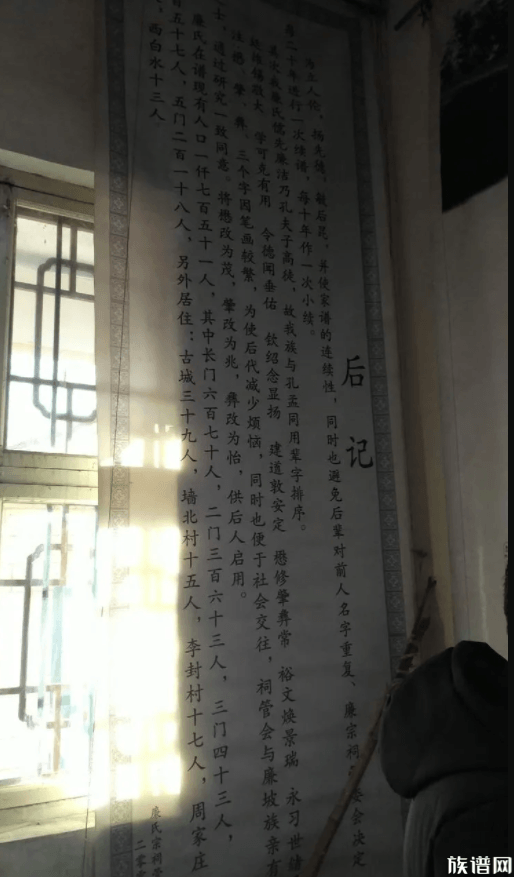 后记
为立人伦，扬先德，敬后昆，并使家谱的连续性，同时也避免后辈对前人名字重复、廉宗祠 委会决定
二十年进行一次续谱，每十年作一次小续。
某次我廉氏儒先廉洁乃孔夫子高徒，故我族与孔孟同用辈字排序。
学可克有用 令德闻垂佑 钦绍念显扬 建道敦安定 懋修肇彝常 裕文焕景瑞 永习世绪
注懋、肇、彝、三个字因笔画较繁，为使后代减少烦恼，同时也便于社会交往，祠管会与廉坡族亲有
士，通过研究一致同意。将懋改为茂，肇改为兆，彝改为怡，供后人启用。
廉氏在谱现有人口一仟七百五十一人，其中长门六百七十人，二门三百六十三人，三门四十三人，
百五十七人，五门二百一十八人，另外居住：古城三十九人，墙北村十五人，李封村十七人，周家庄
人，西白水十三人。
廉氏宗祠
二零
族谱网